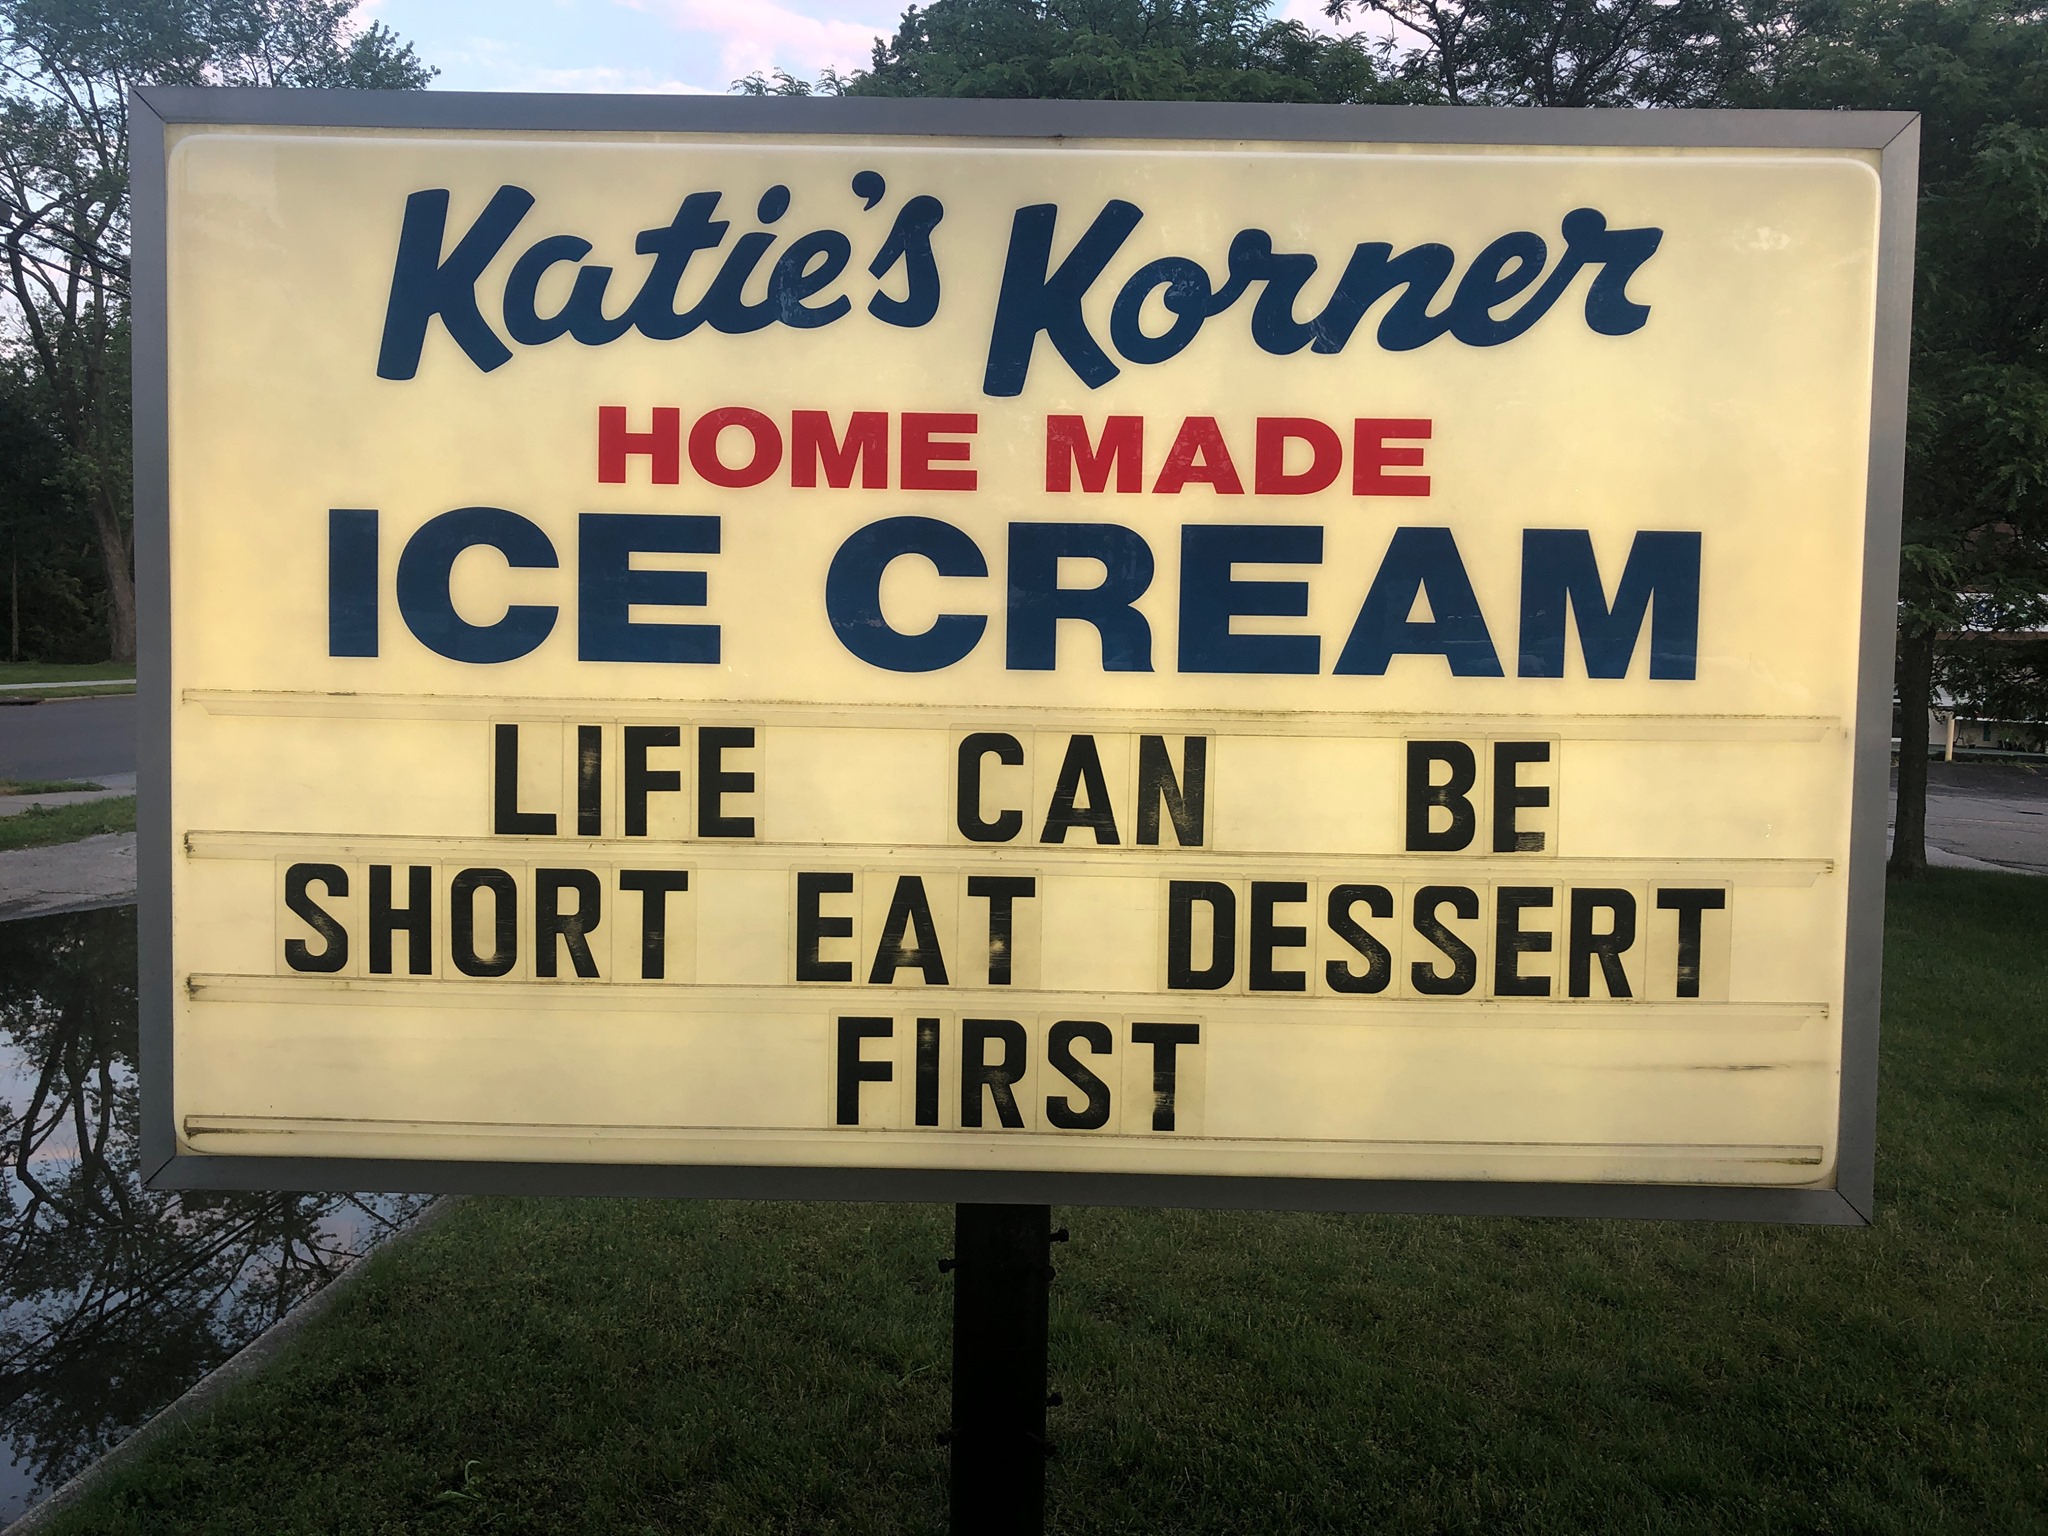 Katie's Korner
HOME MADE
ICE CREAM
LIFE CAN BE
SHORT EAT DESSERT
FIRST